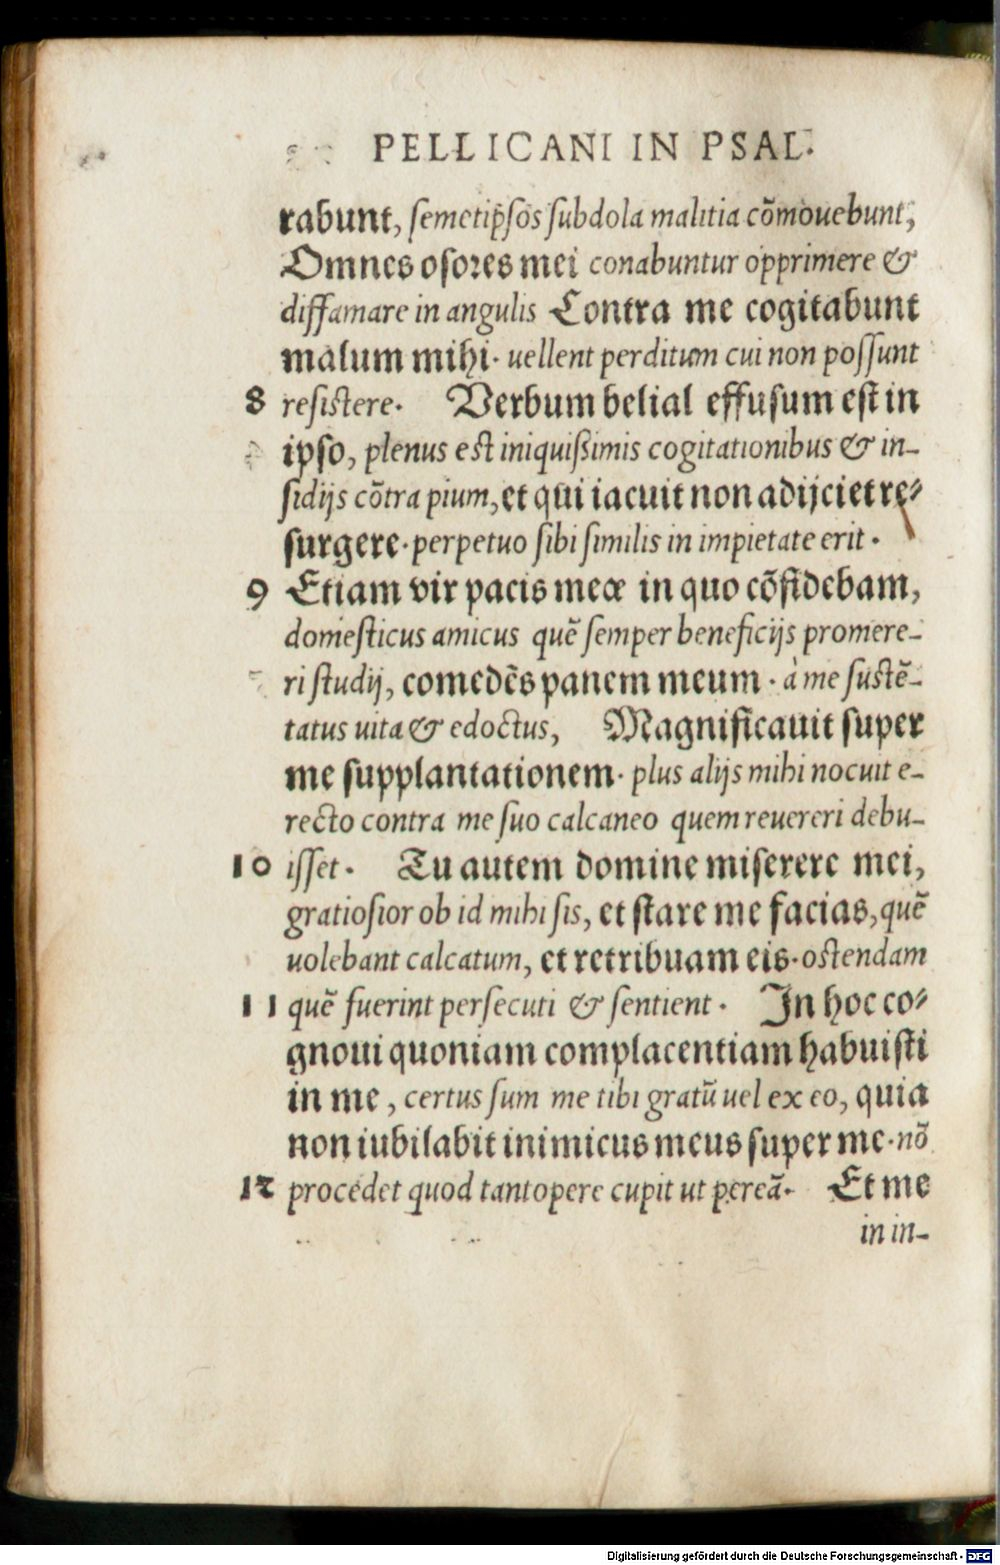 PELLICANI IN PSAL.
rabunt, semetipsos subdola malitia cōmouebunt,
Omnes osores mei conabuntur opprimere &
diffamare in angulis Contra me cogitabunt
malum mihi. uellent perditum cui non possunt
8 resistere. Verbum belial effusum est in
ipso, plenus est iniquißimis cogitationibus & in-
sidijs cōtra pium, et qui iacuit non adijciet re-
surgere. perpetuo sibi similis in impietate erit.
9 Etiam vir pacis meæ in quo cōfidebam,
domesticus amicus quē semper beneficijs promere-
ri studij, comedēs panem meum. à me sustē-
tatus uita & edoctus, Magnificauit super
me supplantationem. plus alijs mihi nocuit e-
recto contra me suo calcaneo quem reuereri debu-
10 isset. Tu autem domine miserere mei,
gratiosior ob id mihi sis, et stare me facias, quē
uolebant calcatum, et retribuam eis. ostendam
11 quē fuerint persecuti & sentient. In hoc co-
gnoui quoniam complacentiam habuisti
in me, certus sum me tibi gratū uel ex eo, quia
non iubilabit inimicus meus super me. nō
12 procedet quod tantopere cupit ut pereā. Et me
in in-
Digitalisierung gefördert durch die Deutsche Forschungsgemeinschaft - DFG